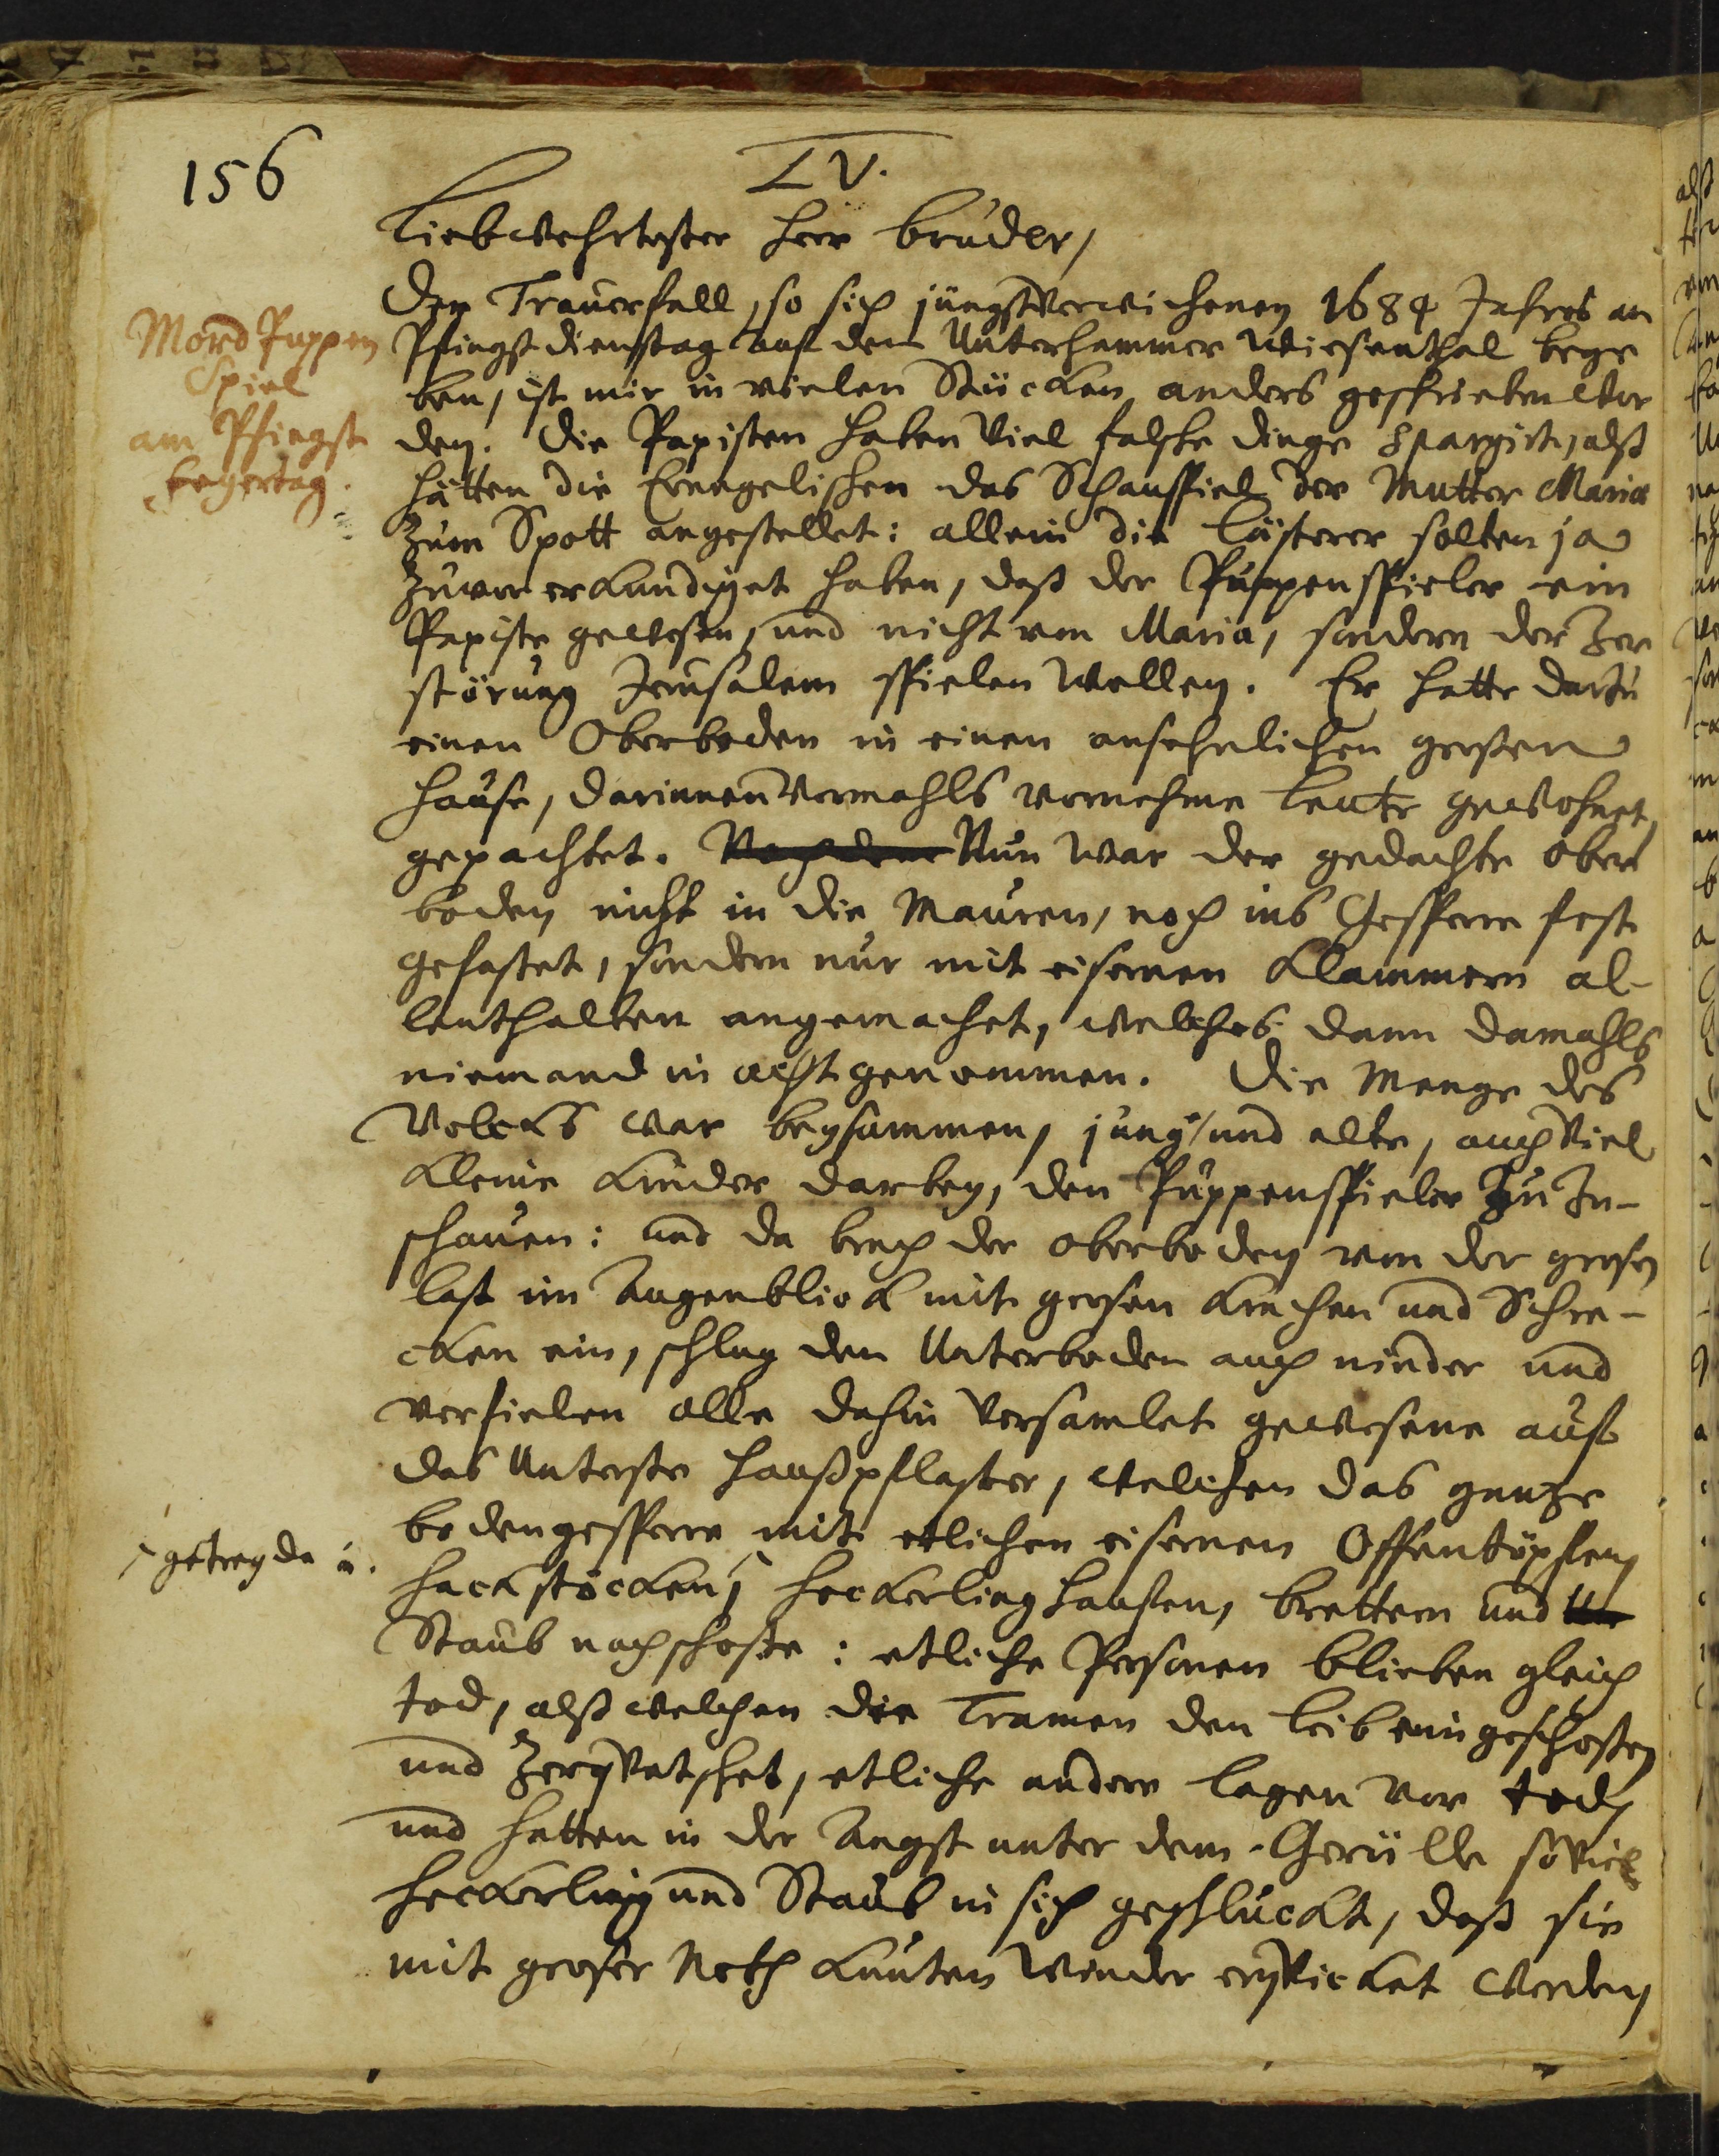 156
IV.
Liebwehrtester Herr Bruder,
Den Trauerfall, so sich jüngstverwichenen 1684 Jahres am
Pfingstdienstag auf den Unterhammer Wiesenthal bege
ben, ist mir in vielen Stücken anders geschrieben wor
den. Die Papisten haben viel falsche dinge spargirt, alß
hätten die Evangelischen das Schauspiel der Mutter Maria
zum Spott angestellet: allein die Lästerer solten ja
zuvor erkundiget haben, daß der Puppenspieler ein
Papiste gewesen, und nicht von Maria, sondern der Zer
störung Jerusalem spielen wollen. Er hatte darzu
einen Oberboden in einen ansehnlichen großen
Hause, darinnen vormahls vornehme Leute gewohnet,
gepachtet. Nachdem Nun war der gedachte ober
boden nicht in die Mauren, noch ins Gesperre fest
gefastet, sondern nur mit eisernen Klammern al-
lenthalben angemachet, welches dann damahls
niemand in acht genommen. Die Menge des
Volcks war beysammen, jung und alte, auch viel
kleine Kinder darbey, den Puppenspieler zu zu-
schauen: und da brach der oberboden von der grosen
last im Augenblick mit grosen Krachen und Schre-
cken ein, schlug den Unterboden auch nieder und
verfielen alle dahin versamlet gewesene auf
das Unterste Haußpflaster, welchen das gantze
bodengesperre mit etlichen eisernen Offentöpfen,
Hackstöcken, Heckerlinghauffen, brettern und
Staub nachschoße: etliche Personen blieben gleich
tod, alß welchen die Tramen den Leib eingeschoßen
und zerqvatschet, etliche andere lagen vor tod,
und hatten in der Angst unter dem Gerülle soviel
Heckerling und Staub in sich geschluckt, daß sie
mit groser Noth kunten wieder erqvicket werden
Mord Puppen
Spiel
am Pfingst
feyertag.
getreyde u.